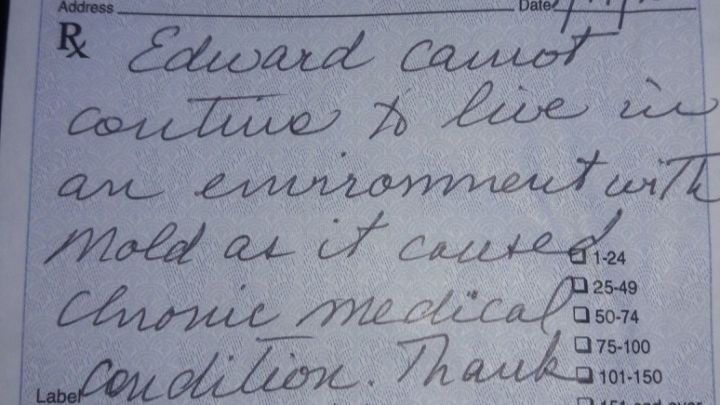 Address Date
Rx Edward cannot
continue to live in
an environment with
mold as it caused
chronic medical
condition. Thank
1-24
25-49
50-74
75-100
101-150
151 and over
Label